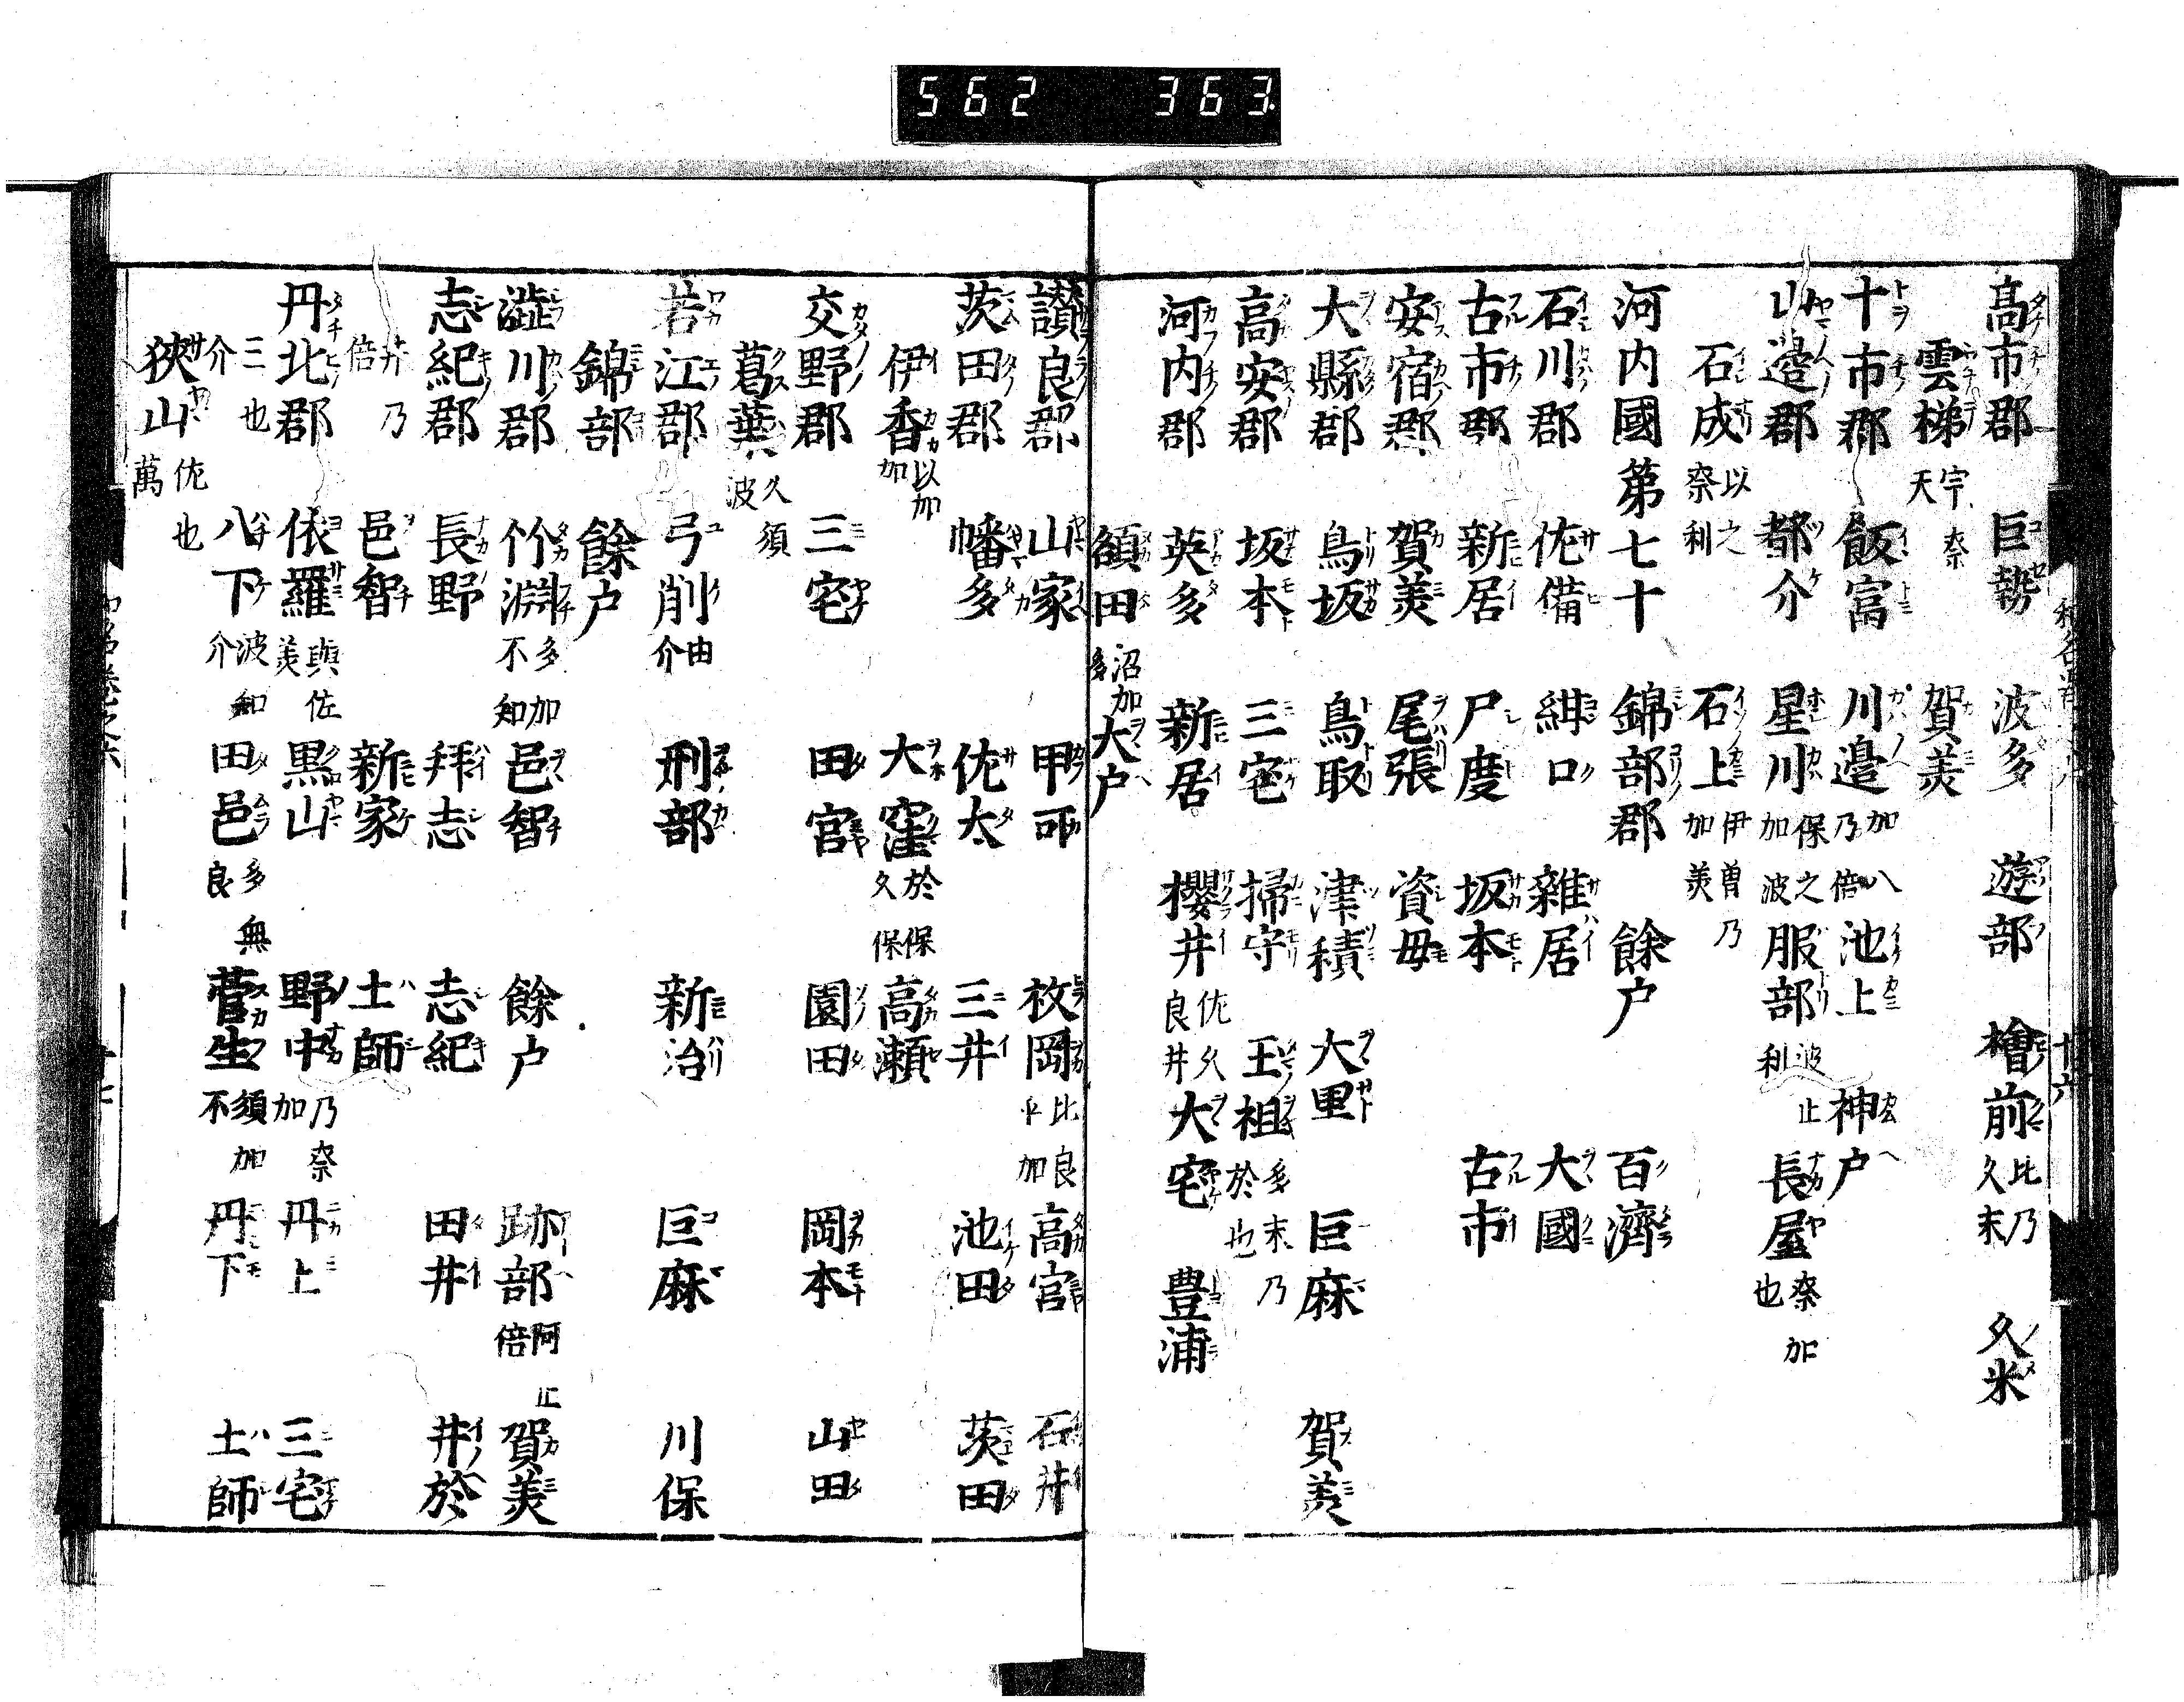 562 363
高市郡 巨勢 波多 遊部 檜前 比乃久末 久米
雲梯 宇奈天 賀美
十市郡 飯富 川邉 加八乃倍 池上 神戸
山邉郡 都介 星川 保之加波 服部 波止利 長屋 奈加也
石成 以之奈利 石上 伊曽乃加美
河内國第七十 錦部郡 餘戸 百濟
石川郡 佐備 紺口 雜居 大國
古市郡 新居 尸度 坂本 古市
安宿郡 賀美 尾張 資母
大縣郡 鳥坂 鳥取 津積 大里 巨麻 賀美
高安郡 坂本 三宅 掃守 玉祖 多末乃於也
河内郡 英多 新居 櫻井 佐久良井 大宅 豊浦
額田 沼加多 大戸
讃良郡 山家 甲可 枚岡 比良乎加 高宮 石井
茨田郡 幡多 佐太 三井 池田 茨田
伊香 以加加 大窪 於保久保 高瀬
交野郡 三宅 田宮 園田 岡本 山田
葛葉 久須波
若江郡 弓削 由介 刑部 新治 巨麻 川保
錦部 餘戸
澁川郡 竹渕 多加不知 邑智 餘戸 跡部 阿止倍 賀美
志紀郡 長野 拜志 志紀 田井 井於
井乃倍 邑智 新家 土師
丹北郡 依羅 與佐美 黒山 野中 乃奈加 丹上 三宅
三也介 八下 波知介 田邑 多無良 菅生 須加不 丹下 土師
狹山 佐也萬